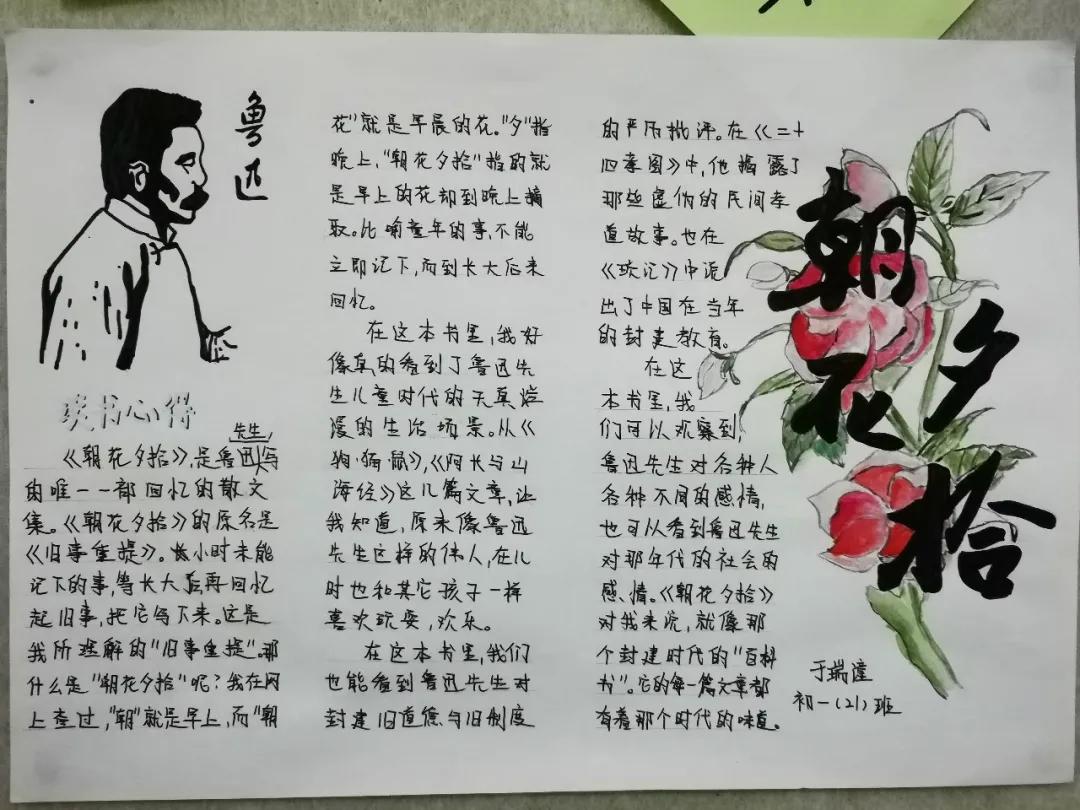 鲁迅
读书心得
先生,
《朝花夕拾》,是鲁迅写
的唯一一部回忆的散文
集。《朝花夕拾》的原名是
《旧事重提》。长小时未能
记下的事,等长大后再回忆
起旧事,把它写下来。这是
我所理解的"旧事重提"。那
什么是"朝花夕拾"呢?我在网
上查过,"朝"就是早上,而"朝
花"就是早晨的花。"夕"指
晚上,"朝花夕拾"指的就
是早上的花却到晚上摘
取。比喻童年的事,不能
立即记下,而到长大后来
回忆。
在这本书里,我好
像真的看到了鲁迅先
生儿童时代的天真烂
漫的生活场景。从《
狗·猫·鼠》,《阿长与山
海经》这几篇文章,让
我知道,原来像鲁迅
先生这样的伟人,在儿
时也和其它孩子一样
喜欢玩耍,欢乐。
在这本书里,我们
也能看到鲁迅先生对
封建旧道德与旧制度
的严厉批评。在《二十
四孝图》中,他揭露了
那些虚伪的民间孝
道故事。也在
《琐记》中流
出了中国在当年
的封建教育。
在这
本书里,我
们可以观察到,
鲁迅先生对各种人
各种不同的感情,
也可以看到鲁迅先生
对那年代的社会的
感情。《朝花夕拾》
对我来说,就像那
个封建时代的"百科
书"。它的每一篇文章都
有着那个时代的味道。
朝花夕拾
于瑞
初一(21)班